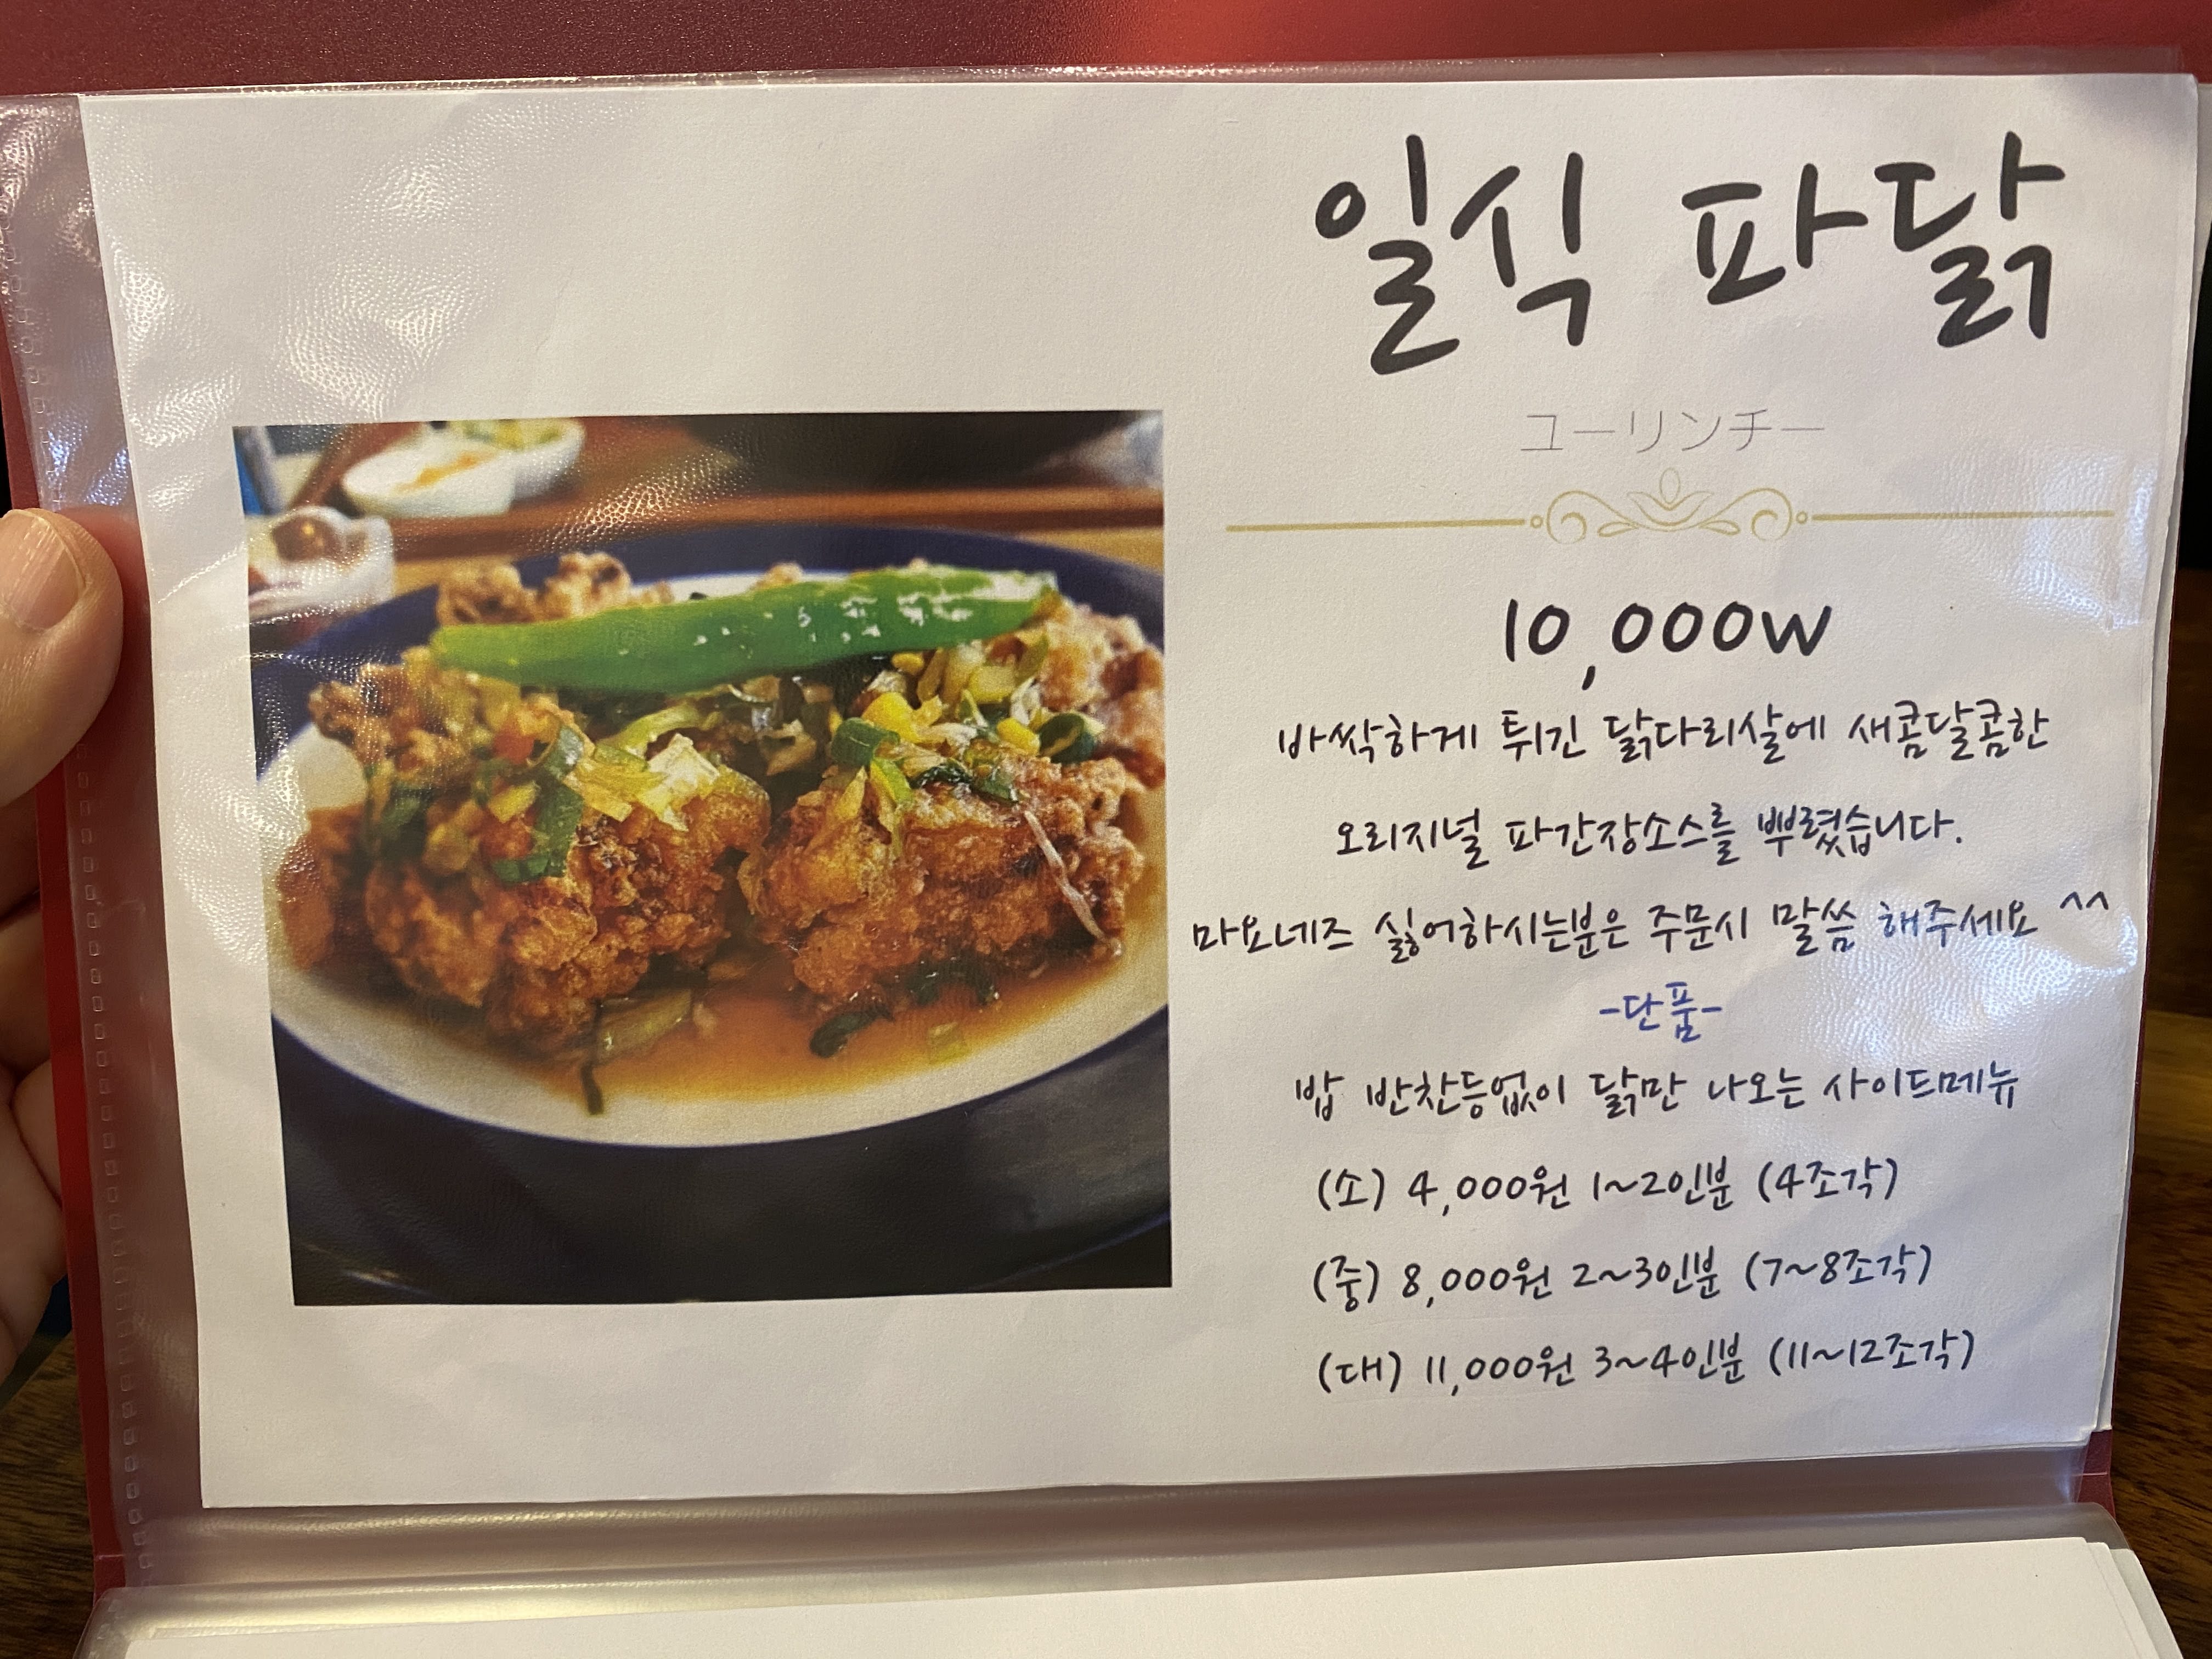 일식 파닭
ユーリンチー
10,000w
바싹하게 튀긴 닭다리살에 새콤달콤한
오리지널 파간장소스를 뿌렸습니다.
마요네즈 싫어하시는분은 주문시 말씀 해주세요 ^^
-단품-
밥 반찬등없이 닭만 나오는 사이드메뉴
(소) 4,000원 1~2인분 (4조각)
(중) 8,000원 2~3인분 (7~8조각)
(대) 11,000원 3~4인분 (11~12조각)